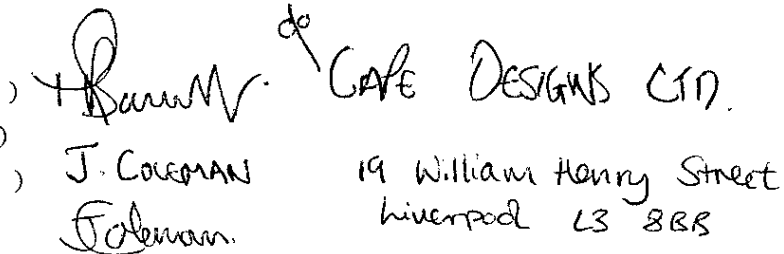 c/o CAPE DESIGNS LTD.
J. COLEMAN 19 William Henry Street
JColeman. Liverpool L3 8BB